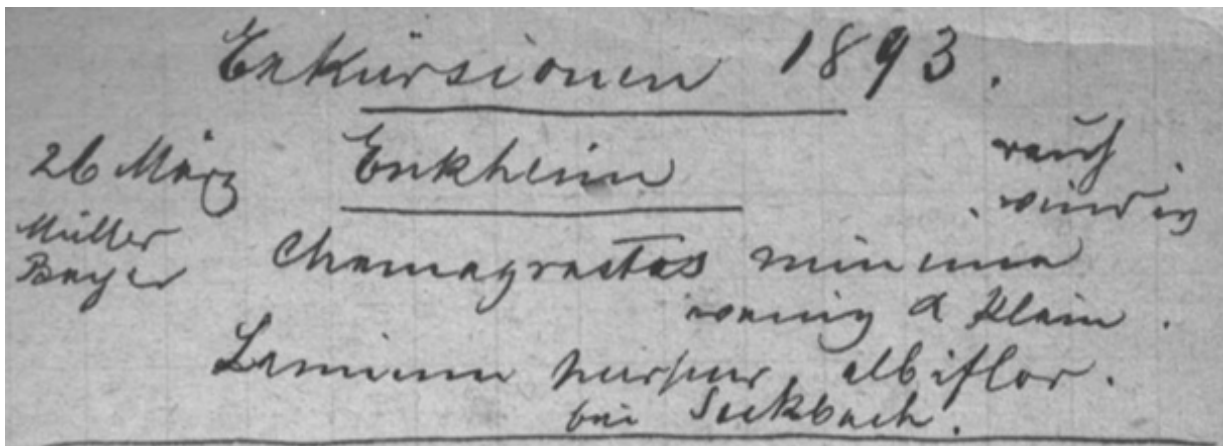 Exkursionen 1893.
26 März Enkheim rauh.
windig
Müller
Bayer
Chamagrostis minima
wenig & klein.
Lamium purpur. albiflor.
bei Seckbach.